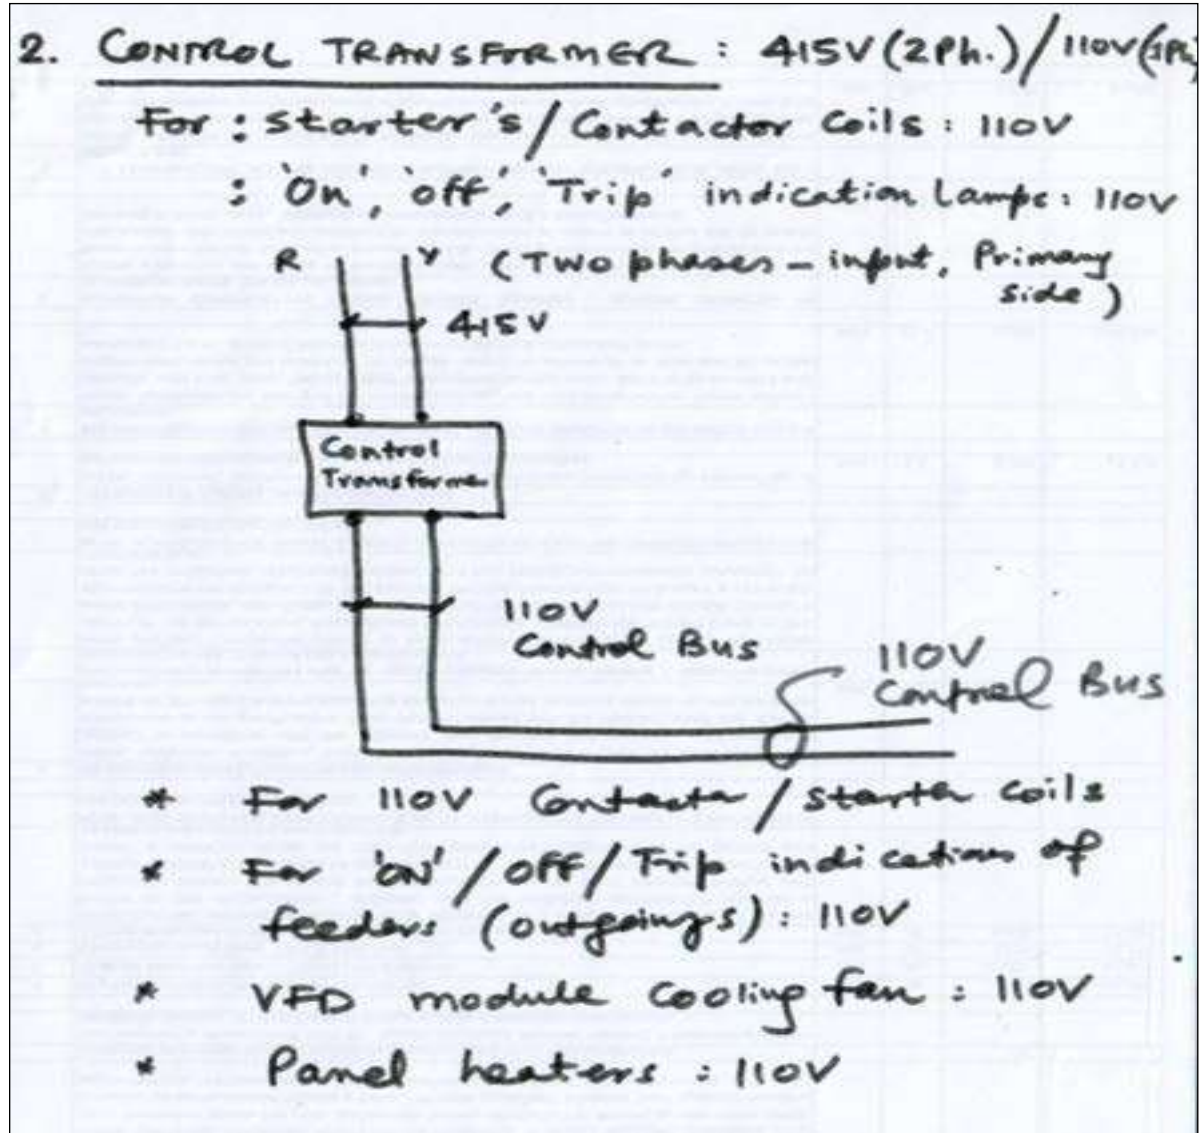 2. CONTROL TRANSFORMER : 415V (2Ph.) / 110V (1Ph)
For : starter's / Contactor Coils : 110V
: 'On', 'off', 'Trip' indication Lamps : 110V
R Y (Two phases - input, Primary
side)
415V
Control
Transforme
110V
Control Bus
110V
Control Bus
* For 110V Contactor / starter coils
* For 'ON' / OFF / Trip indications of
feeders (outgoings) : 110V
* VFD module cooling fan : 110V
* Panel heaters : 110V